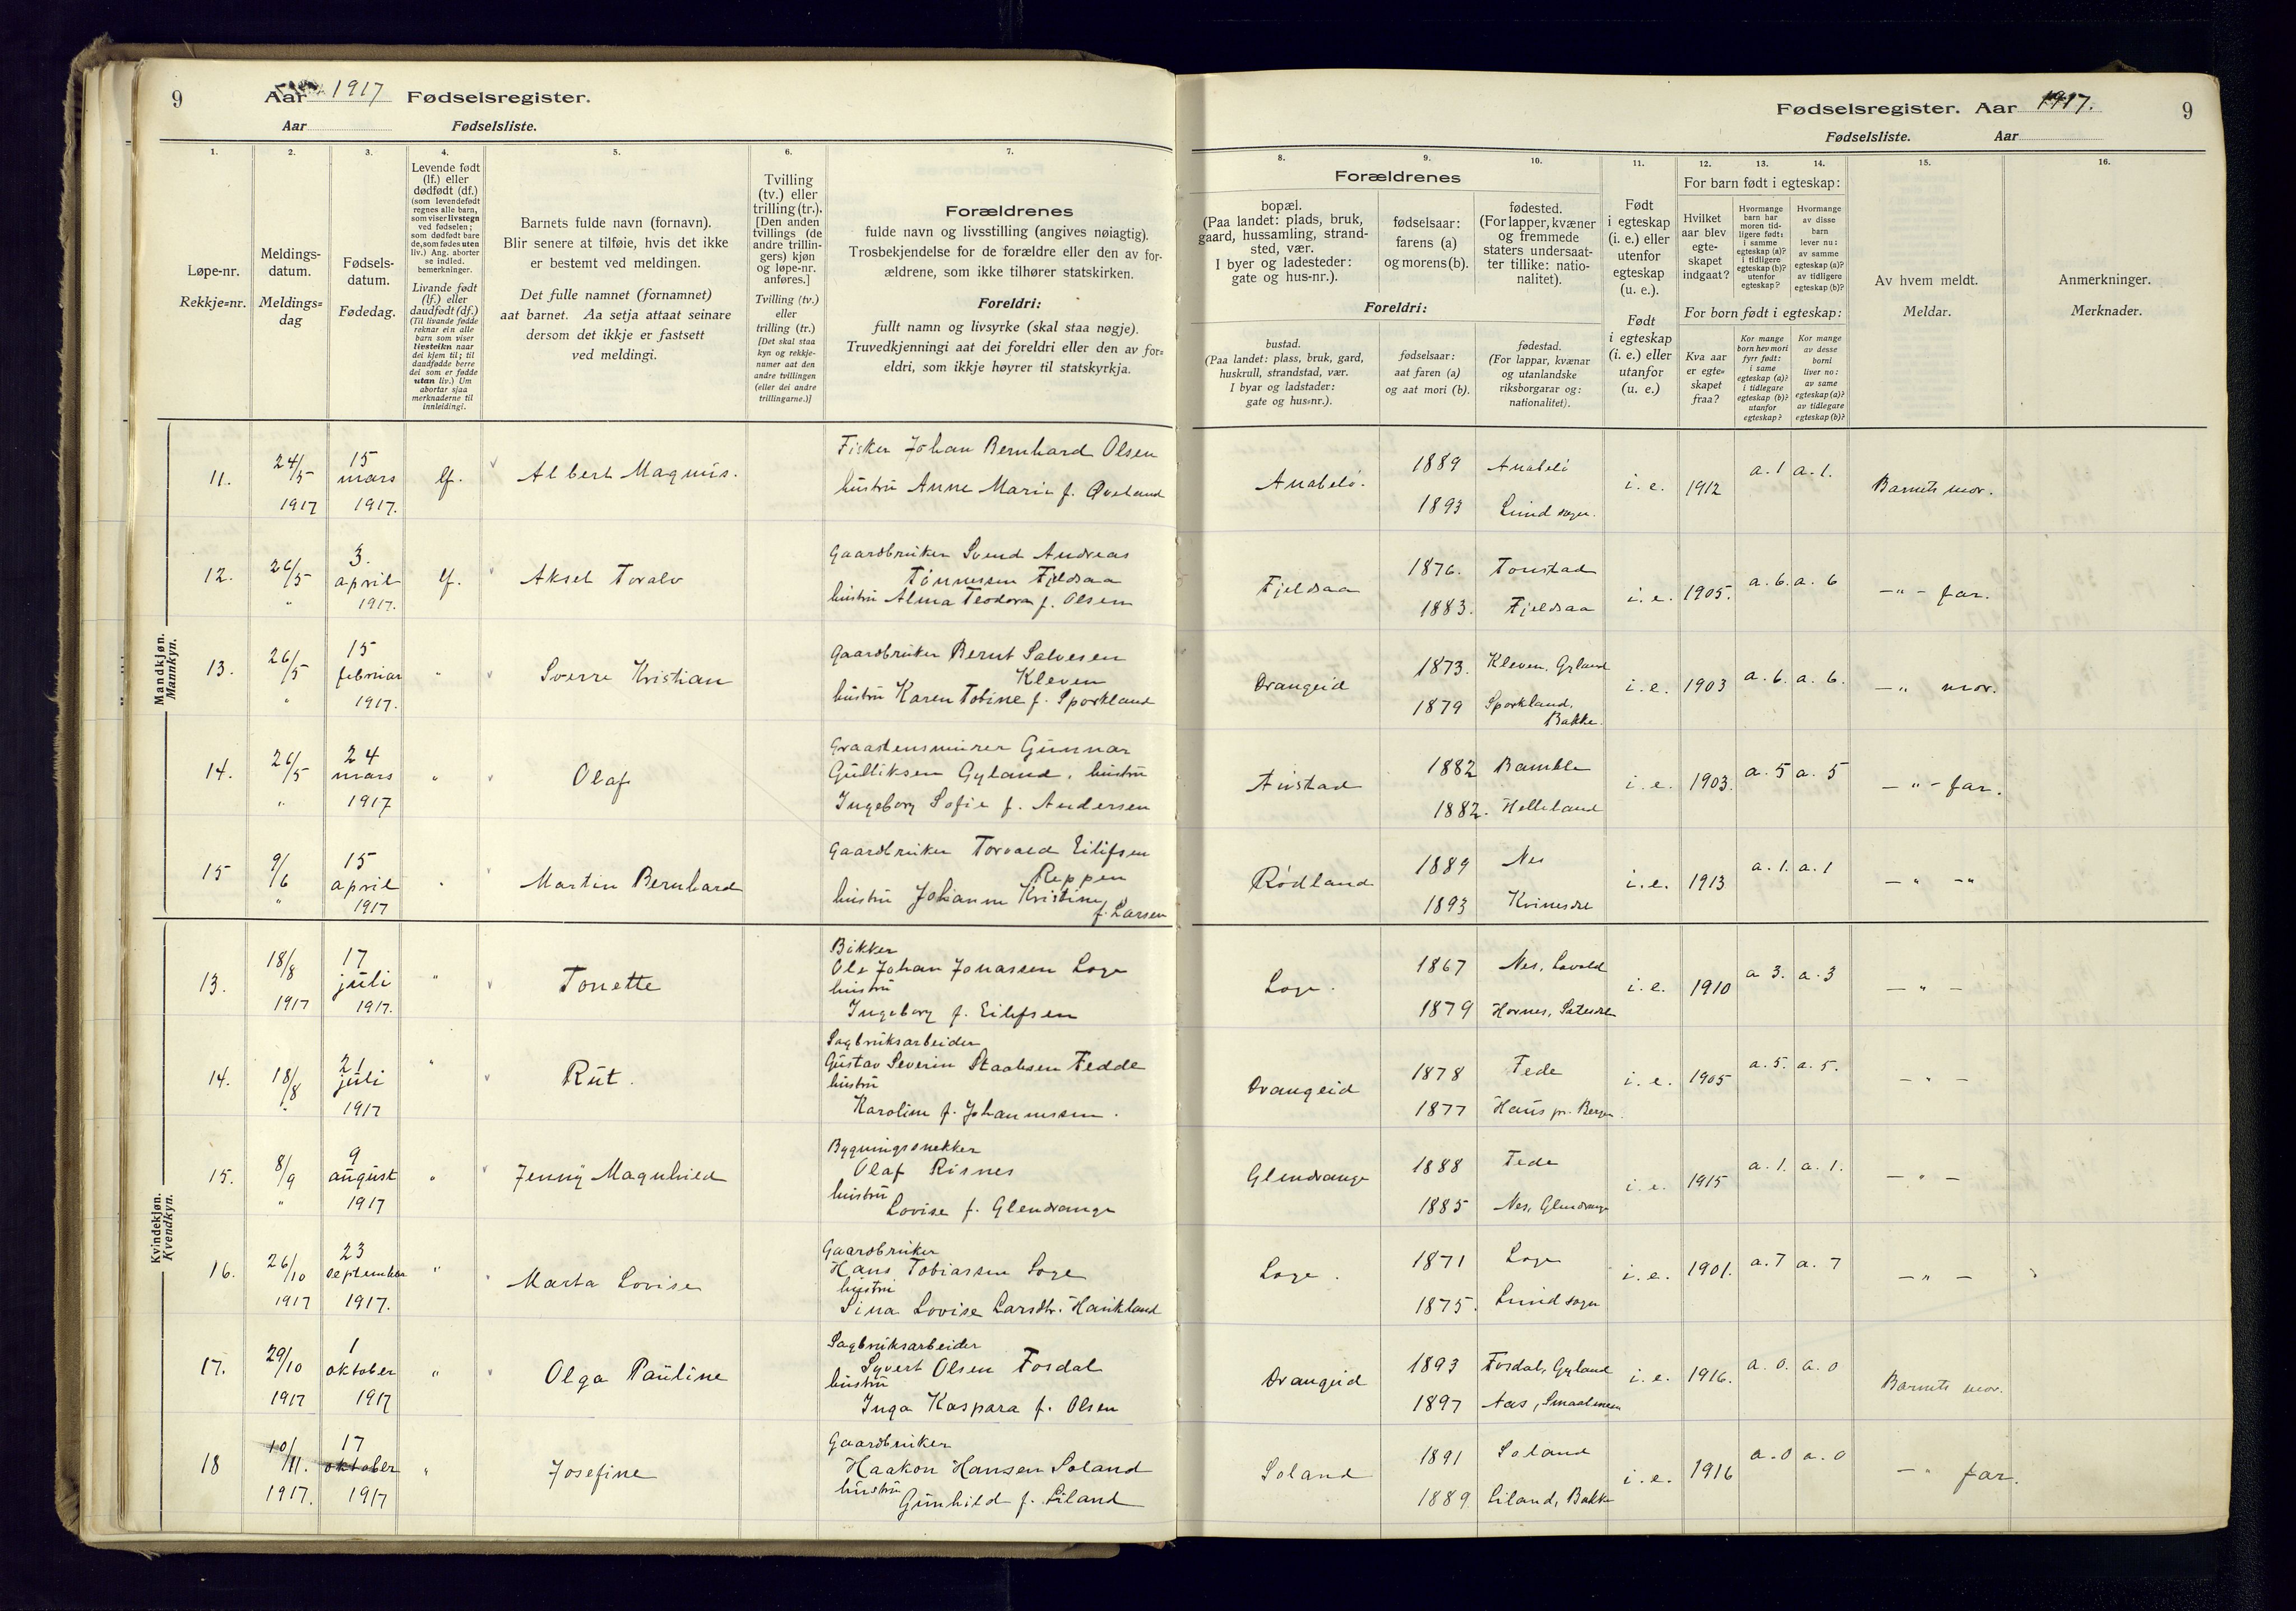 9 Aar 1917 Fødselsregister.
Aar Fødselsliste.
1. 2. 3. 4. 5. 6. 7.
Løpe-nr.
Rekkje=nr.
Meldings-
datum.
Meldings=
dag
Fødsels-
datum.
Fødedag.
Levende født
(lf.) eller
dødfødt (df.)
(som levendefødt
regnes alle barn,
som viser livstegn
ved fødselen;
som dødfødt bare
de, som fødes uten
liv.) Ang. aborter
se indled.
bemerkninger.
Livande født
(lf.) eller
daudfødt (df.)
(Til livande fødde
reknar ein alle
barn som viser
livsteikn naar
dei kjem til; til
daudfødde berre
dei som er fødde
utan liv.) Um
abortar sjaa
merknaderne til
innleidingi.
Barnets fulde navn (fornavn).
Blir senere at tilføie, hvis det ikke
er bestemt ved meldingen.
Det fulle namnet (fornamnet)
aat barnet. Aa setja attaat seinare
dersom det ikkje er fastsett
ved meldingi.
Tvilling
(tv.) eller
trilling (tr.).
[Den anden
tvillings (de
andre trillin-
gers) kjøn
og løpe-nr.
anføres.]
Tvilling (tv.)
eller
trilling (tr.)
[Det skal staa
kyn og rekkje-
numer aat den
andre tvillingen
(eller dei andre
trillingarne.)]
Forældrenes
fulde navn og livsstilling (angives nøiagtig).
Trosbekjendelse for de forældre eller den av for-
ældrene, som ikke tilhører statskirken.
Foreldri:
fullt namn og livsyrke (skal staa nøgje).
Truvedkjenningi aat dei foreldri eller den av for=
eldri, som ikkje høyrer til statskyrkja.
Mandkjøn.
Mannkyn.
11. 24/5 1917 15 mars 1917. lf. Albert Magnus.
Fisker Johan Bernhard Olsen
hustru Anne Marie f. Øveland
12. 26/5 " 3. april 1917. lf. Aksel Toralv
Gaardbruker Svend Andreas
Tönnessen Fjeldsaa
hustru Alma Teodora f. Olsen
13. 26/5 " 15 februar 1917. " Sverre Kristian
Gaardbruker Bernt Salvesen
Kleven
hustru Karen Tobine f. Sporkland
14. 26/5 " 24 mars 1917 " Olaf
Graastensmurer Gunnar
Gulliksen Gyland, hustru
Ingeborg Sofie f. Andersen
15 9/6 " 15 april 1917 " Martin Bernhard
Gaardbruker Torvald Eilifsen
Reppen
hustru Johanne Kristine
f. Larsen
Kvindekjøn.
Kvendkyn.
13. 18/8 1917 17 juli 1917. " Tonette
Bökker
Ole Johan Jonassen Loge
hustru
Ingeborg f. Eilifsen
14. 18/8 " 21 juli 1917 " Rut.
Sagbruksarbeider
Gustav Severin Staalesen Fedde
hustru
Karoline f. Johannessen.
15. 8/9 " 9 august 1917 " Jenny Magnhild
Bygningssnekker
Olaf Risnes
hustru
Lovise f. Glendrange
16. 26/10 1917 23 september 1917. " Marta Lovise
Gaardbruker
Hans Tobiassen Loge
hustru
Sina Lovise Larsdtr. Haukland
17. 29/10 1917 1 oktober 1917 " Olga Pauline
Sagbruksarbeider
Syvert Olsen Fosdal
hustru
Inga Kaspara f. Olsen
18 10/11. 1917. 17 oktober 1917 " Josefine
Gaardbruker
Haakon Hansen Soland
hustru
Gunhild f. Liland
Fødselsregister. Aar 1917. 9
Fødselsliste. Aar
8. 9. 10. 11. 12. 13. 14. 15. 16.
Forældrenes
bopæl.
(Paa landet: plads, bruk,
gaard, hussamling, strand-
sted, vær.
I byer og ladesteder:
gate og hus-nr.).
fødselsaar:
farens (a)
og morens (b).
fødested.
(For lapper, kvæner
og fremmede
staters undersaat-
ter tillike: natio-
nalitet).
Foreldri:
bustad.
(Paa landet: plass, bruk, gard,
huskrull, strandstad, vær.
I byar og ladstader:
gate og hus=nr.).
fødselsaar:
aat faren (a)
og aat mori (b).
fødestad.
(For lappar, kvænar
og utanlandske
riksborgarar og:
nationalitet).
Født
i egteskap
(i. e.) eller
utenfor
egteskap
(u. e.).
Født
i egteskap
(i. e.) eller
utanfor
(u. e.)
For barn født i egteskap:
Hvilket
aar blev
egte-
skapet
indgaat?
Hvormange
barn har
moren tid-
ligere født:
i samme
egteskap (a)?
i tidligere
egteskap (b)?
utenfor
egteskap?
Hvormange
av disse
barn
lever nu:
av samme
egteskap (a)?
av tidligere
egteskap (b)?
For born født i egteskap:
Kva aar
er egte=
skapet
fraa?
Kor mange
born hev mori
fyrr født:
i same
egteskap (a)?
i tidlegare
egteskap (b)?
utanfor
egteskap?
Kor mange
av desse
borni
liver no:
av same
egteskap (a)?
av tidlegare
egteskap (b)?
Av hvem meldt.
Meldar.
Anmerkninger.
Merknader.
Anabelö. 1889 Anabelö i. e. 1912 a. 1 a. 1. Barnets mor.
1893 Lund sogn.
Fjeldsaa 1876. Tonstad i. e. 1905. a. 6. a. 6 — " — far.
1883. Fjeldsaa
Drangeid 1873. Kleven, Gyland i. e. 1903 a. 6. a. 6. — " mor.
1879 Sporkland,
Bakke.
Austad 1882 Bamble i. e. 1903. a. 5 a. 5 — " — far.
1882. Helleland
Rödland 1889 Nes i. e. 1913 a. 1. a. 1 — " — "
1893 Kvinesdal
Loge. 1867 Nes, Lavold i. e. 1910 a 3. a. 3 — " —
1879 Hornes, Sætesdal
Drangeid 1878 Fede i. e. 1905 a. 5. a. 5. — " —
1877 Haus pr. Bergen.
Glendrange 1888 Fede i. e. 1915 a. 1. a. 1. — " —
1885 Nes, Glendrange
Loge. 1871 Loge i. e. 1901. a. 7 a. 7 — " —
1875. Lund sogn
Drangeid 1893 Fosdal, Gyland i. e. 1916. a. 0. a. 0 Barnets mor.
1897 Aas, Smaalenene
Soland 1891 Soland i. e. 1916 a. 0 a. 0 — " far.
1889. Liland, Bakke